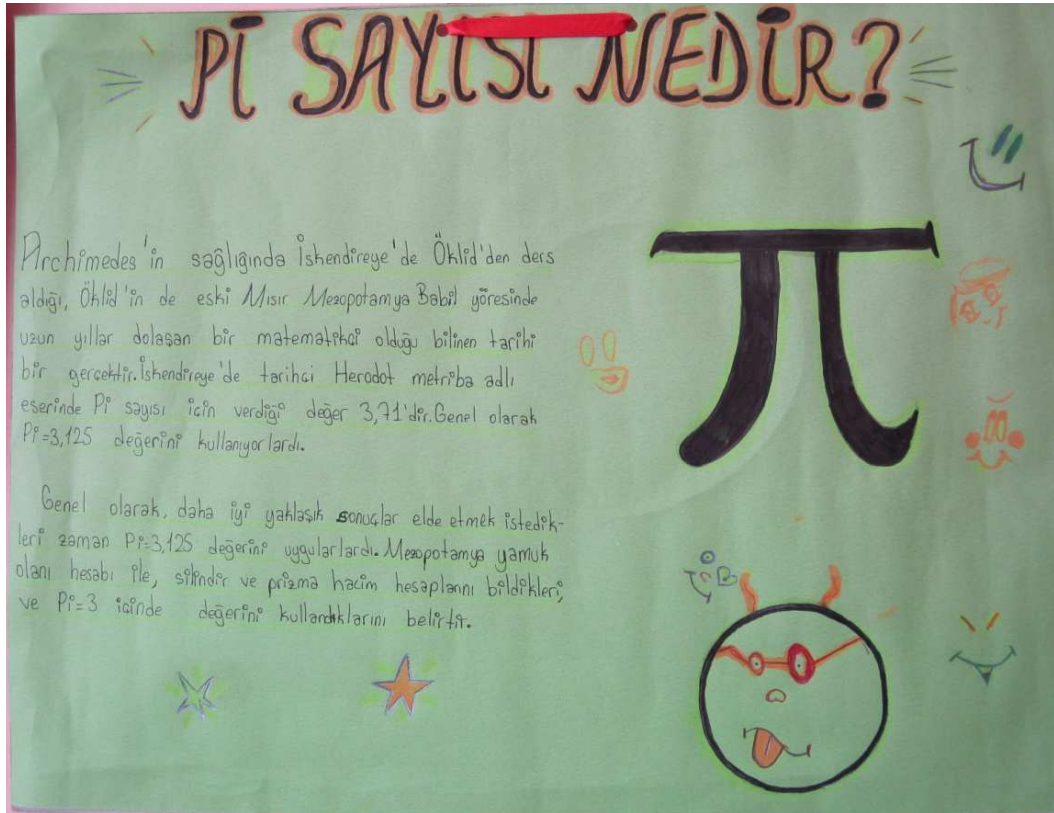 Pİ SAYISI NEDİR?
Archimedes'in sağlığında İskendireye'de Öklid'den ders
aldığı, Öklid'in de eski Mısır Mezopotamya Babil yöresinde
uzun yıllar dolaşan bir matematikçi olduğu bilinen tarihi
bir gerçektir. İskendireye'de tarihci Herodot metriba adlı
eserinde Pi sayısı için verdiği değer 3,71'dir. Genel olarak
Pi=3,125 değerini kullanıyorlardı.
Genel olarak, daha iyi yaklaşık sonuçlar elde etmek istedik-
leri zaman Pi=3,125 değerini uygularlardı. Mezopotamya yamuk
olanı hesabı ile, silindir ve prizma hacim hesaplarını bildikleri,
ve Pi=3 içinde değerini kullandıklarını belirtir.
π